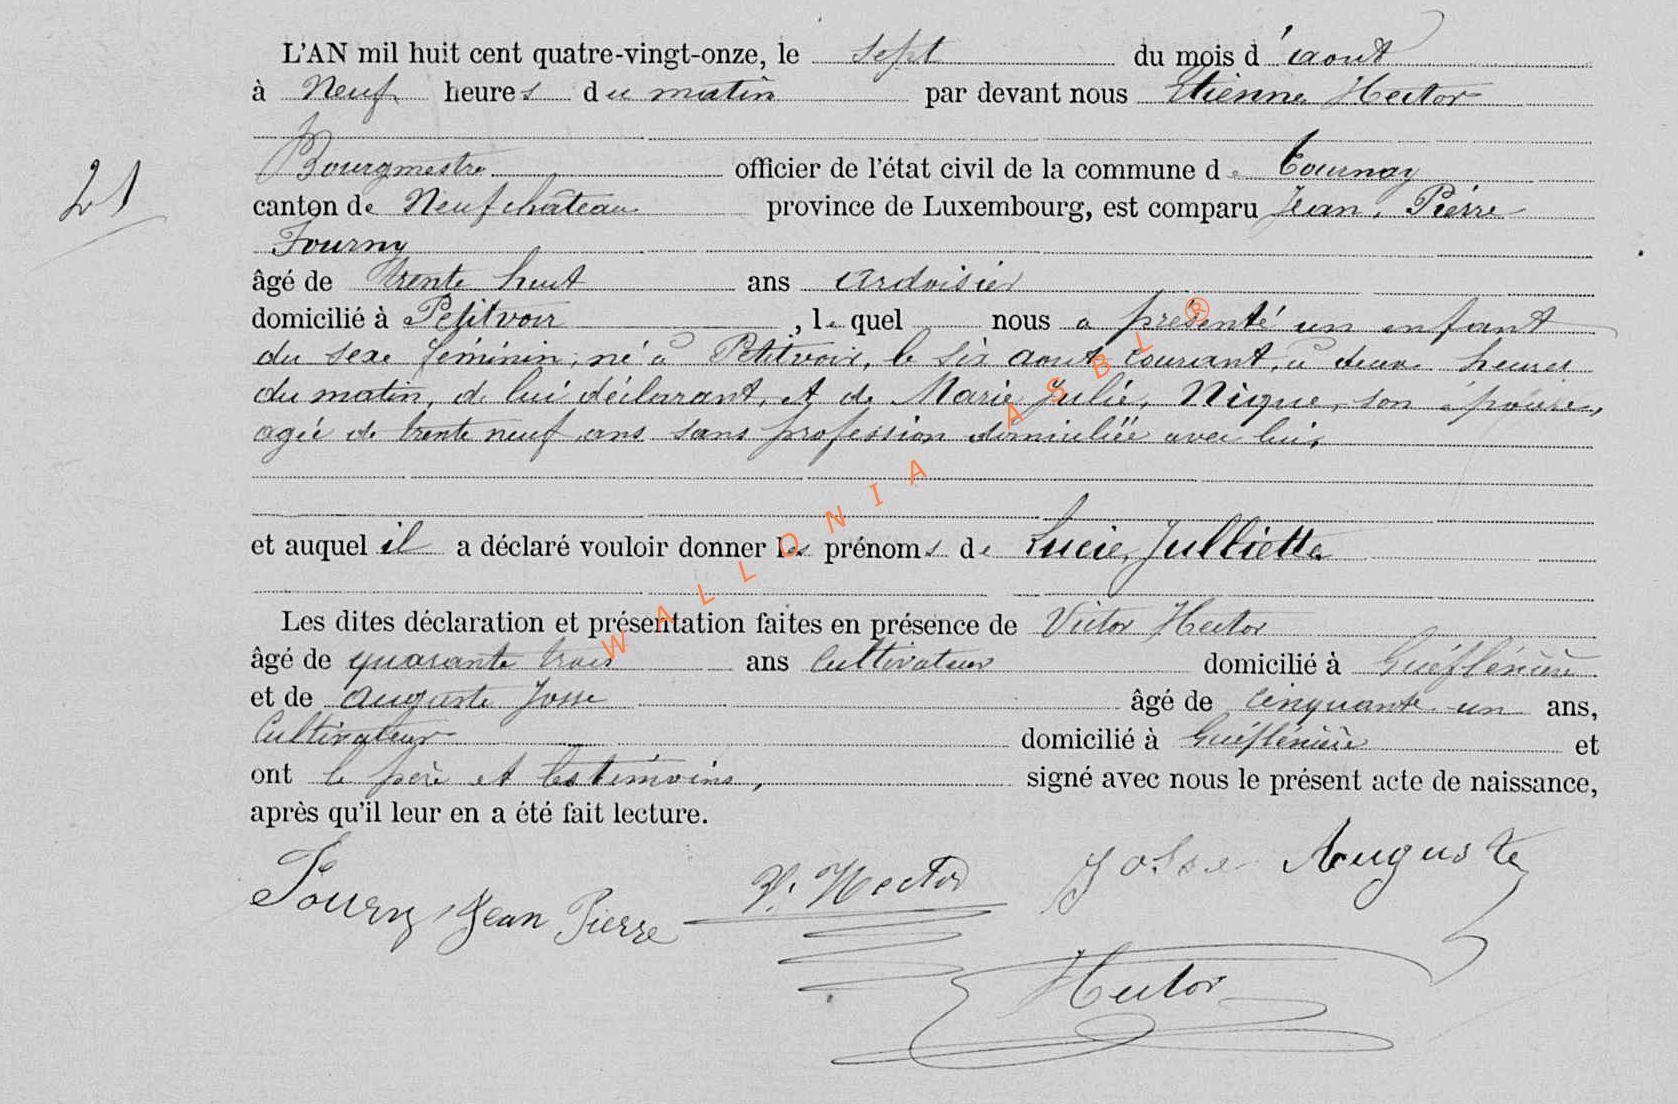 L'AN mil huit cent quatre-vingt-onze, le sept du mois d'aout
à Neuf heures du matin par devant nous Etienne Hector
Bourgmestre officier de l'état civil de la commune de Tournay
21
canton de Neufchâteau province de Luxembourg, est comparu Jean, Pierre
Fourny
âgé de trente huit ans Ardoisier
domicilié à Petitvoir, lequel nous a présenté un enfant
du sexe féminin, né à Petitvoir, le six aout courant, à deux heures
du matin, de lui déclarant, et de Marie Julie, Nique, son épouse,
agée de trente neuf ans sans profession domiciliée avec lui,
et auquel il a déclaré vouloir donner les prénoms de Lucie, Julliette
Les dites déclaration et présentation faites en présence de Victor Hector
âgé de quarante trois ans Cultivateur domicilié à
et de Auguste Josse âgé de cinquante un ans,
Cultivateur domicilié à et
ont le père et les témoins, signé avec nous le présent acte de naissance,
après qu'il leur en a été fait lecture.
Fourny Jean Pierre V. Hector Josse Auguste
Hector
WALLONIA ASBL ®